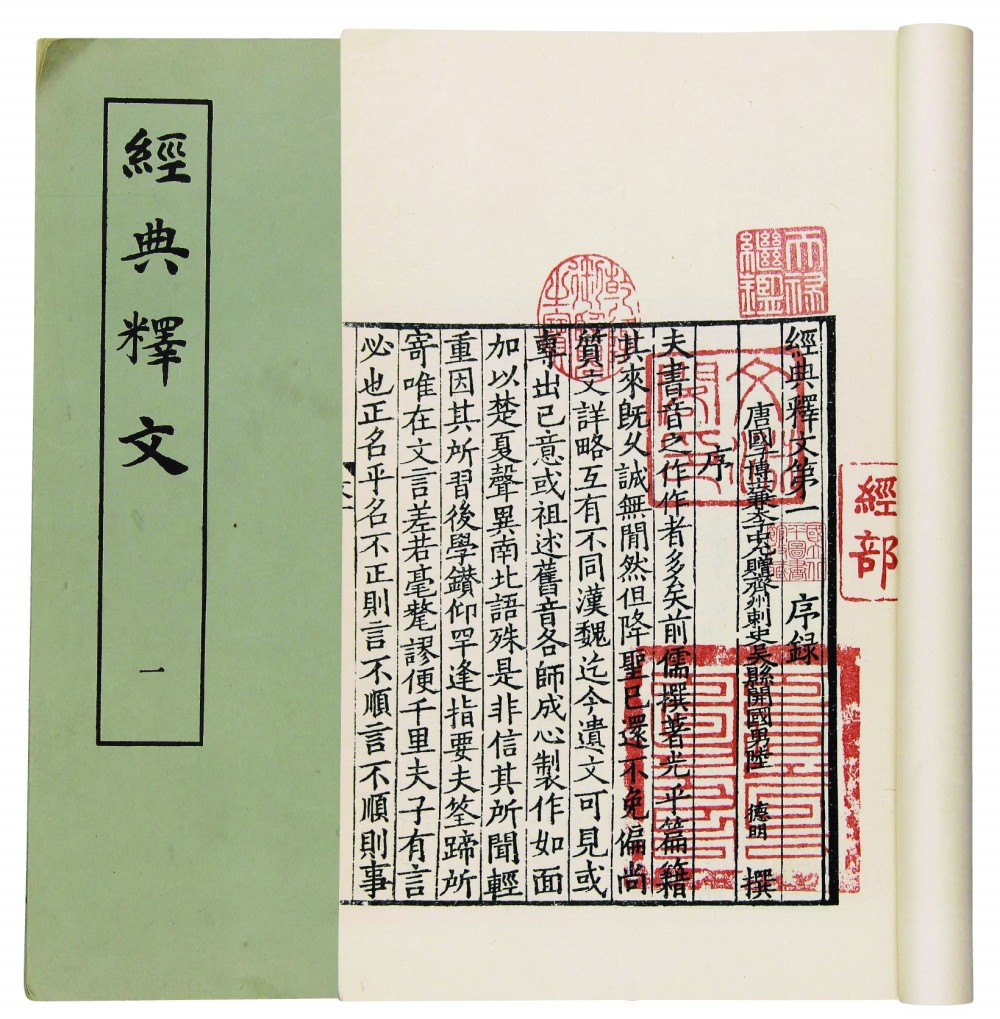 經典釋文
一
天祿繼鑑
乾隆御覽之寶
文淵閣印
經部
經典釋文第一 序錄
唐國子博士兼太子中允贈齊州刺史吳縣開國男陸 德明 撰
序
夫書音之作作者多矣前儒撰著光乎篇籍
其來旣久誠無閒然但降聖已還不免偏尚
質文詳略互有不同漢魏迄今遺文可見或
專出己意或祖述舊音各師成心製作如面
加以楚夏聲異南北語殊是非信其所聞輕
重因其所習後學鑽仰罕逢指要夫筌蹄所
寄唯在文言差若毫氂謬便千里夫子有言
必也正名乎名不正則言不順言不順則事